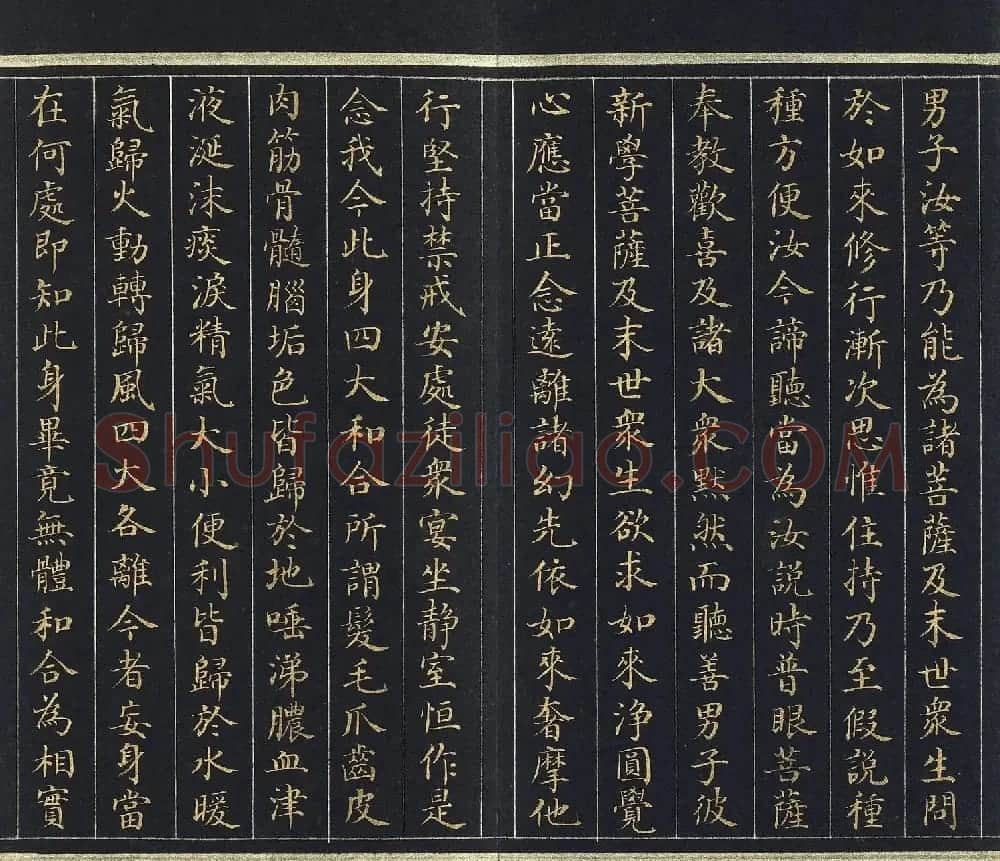 男子汝等乃能為諸菩薩及末世衆生問
於如來修行漸次思惟住持乃至假説種
種方便汝今諦聽當為汝説時普眼菩薩
奉教歡喜及諸大衆黙然而聽善男子彼
新學菩薩及末世衆生欲求如來淨圓覺
心應當正念遠離諸幻先依如來奢摩他
行堅持禁戒安處徒衆宴坐静室恒作是
念我今此身四大和合所謂髮毛爪齒皮
肉筋骨髓腦垢色皆歸於地唾涕膿血津
液涎沫痰淚精氣大小便利皆歸於水暖
氣歸火動轉歸風四大各離今者妄身當
在何處即知此身畢竟無體和合為相實
Shufaziliao.COM